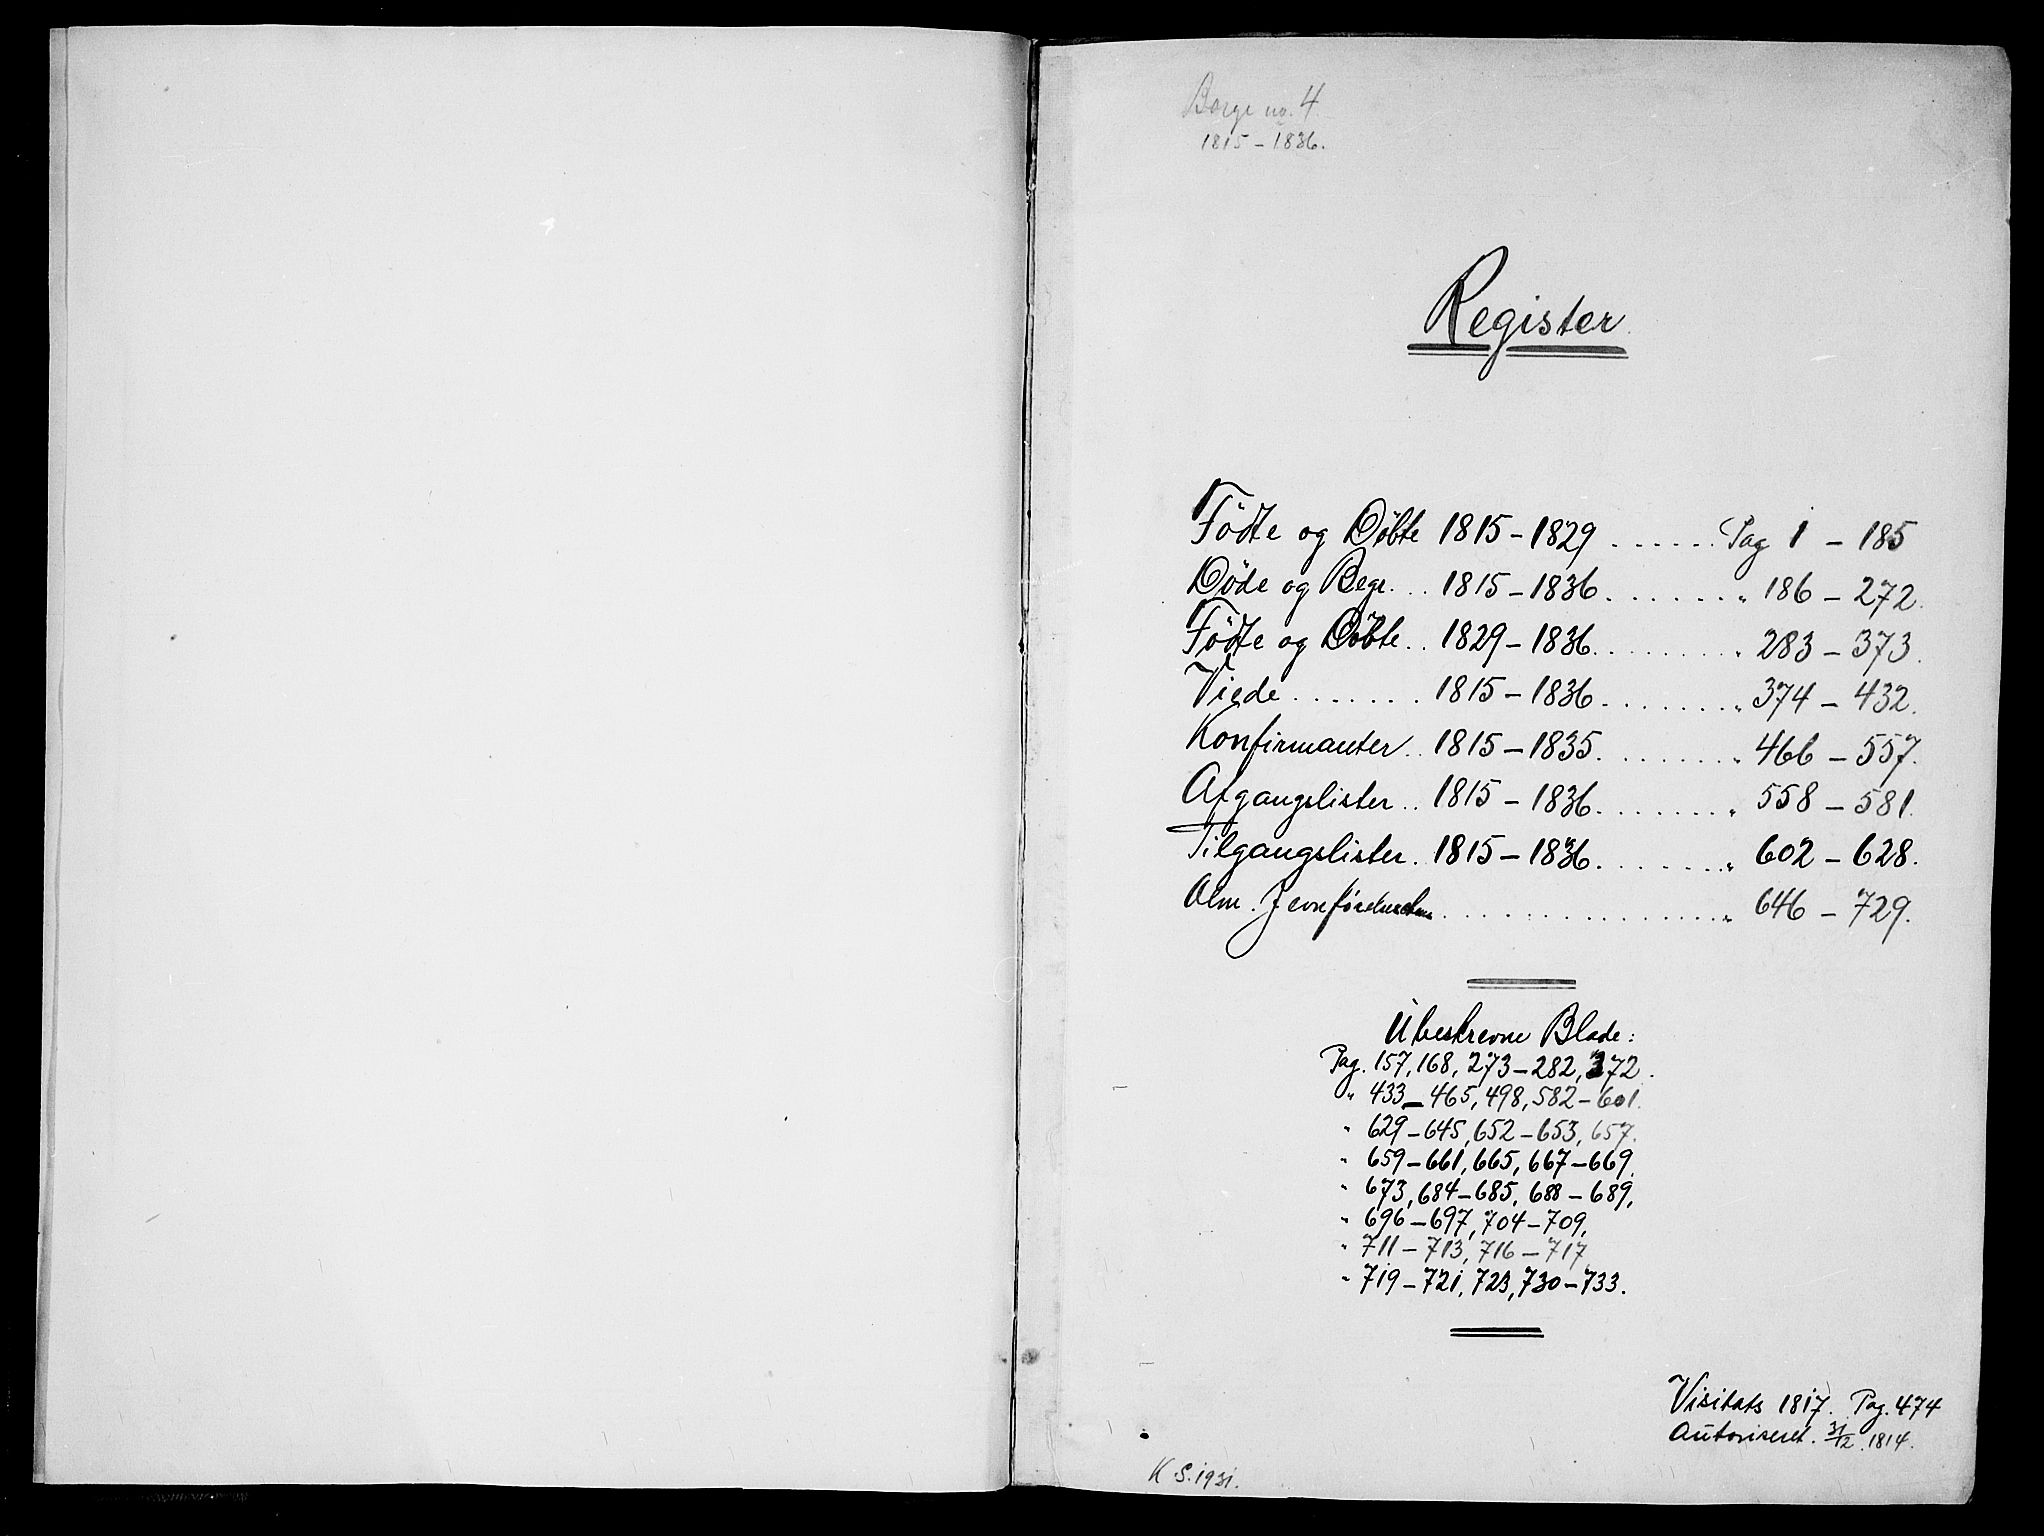 Borge no. 4.
1815 – 1836.
Register
Födte og Döbte 1815 – 1829 . . . . . . Pag 1 – 185
Döde og Begr. . . 1815 – 1836 . . . . . . . " 186 – 272.
Födte og Döbte . . 1829 – 1836 . . . . . . . . " 283 – 373.
Viede . . . . . . . 1815 – 1836 . . . . . . . " 374 – 432.
Konfirmanter . . 1815 – 1835 . . . . . . . " 466 – 557.
Afgangslister . . 1815 – 1836 . . . . . . . " 558 – 581.
Tilgangslister . 1815 – 1836 . . . . . . . " 602 – 628.
Alm. Jevnförelses . . . . . . . . . . . . . . . " 646 – 729.
Ubeskrevne Blade:
Pag. 157, 168, 273 – 282, 372.
" 433 – 465, 498, 582 – 601.
" 629 – 645, 652 – 653, 657.
" 659 – 661, 665, 667 – 669.
" 673, 684 – 685, 688 – 689,
" 696 – 697, 704 – 709,
" 711 – 713, 716 – 717
" 719 – 721, 723, 730 – 733.
Visitats 1817. Pag. 474
Autoriseret. 31/12 1814.
K S. 1931.